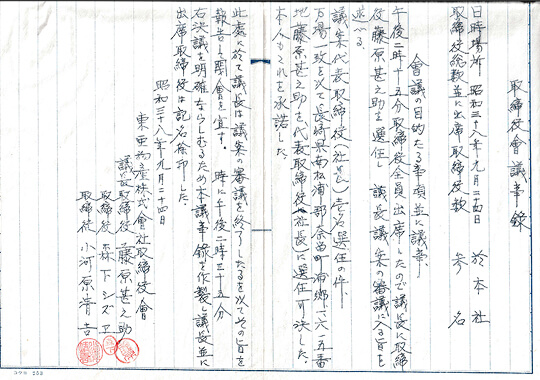 取締役會議事錄
日時場所 昭和三十八年九月二十四日 於本社
取締役総数並に出席取締役数 参名
會議の目的たる事項並に議事
午後二時十五分取締役全員出席したので議長に取締
役藤原甚之助を選任し 議長議案の審議に入る旨を
述べる
議案代表取締役(社長)壱名選任の件
万場一致を以て長崎県南松浦郡奈留町浦郷一六八五番
地藤原甚之助を代表取締役(社長)に選任可決した。
本人もこれを承諾した。
此處に於て議長は議案の審議を終了したるを以てその旨を
報告し閉會を宣す。 時に午後二時三十五分
右決議を明確ならしむるため本議事錄を作製し議長並に
出席取締役は記名捺印した。
昭和三十八年九月二十四日
東亜物產株式會社取締役會
議長取締役 藤原甚之助
取締役 森下シズヱ
取締役 小河原清吉
コクヨ